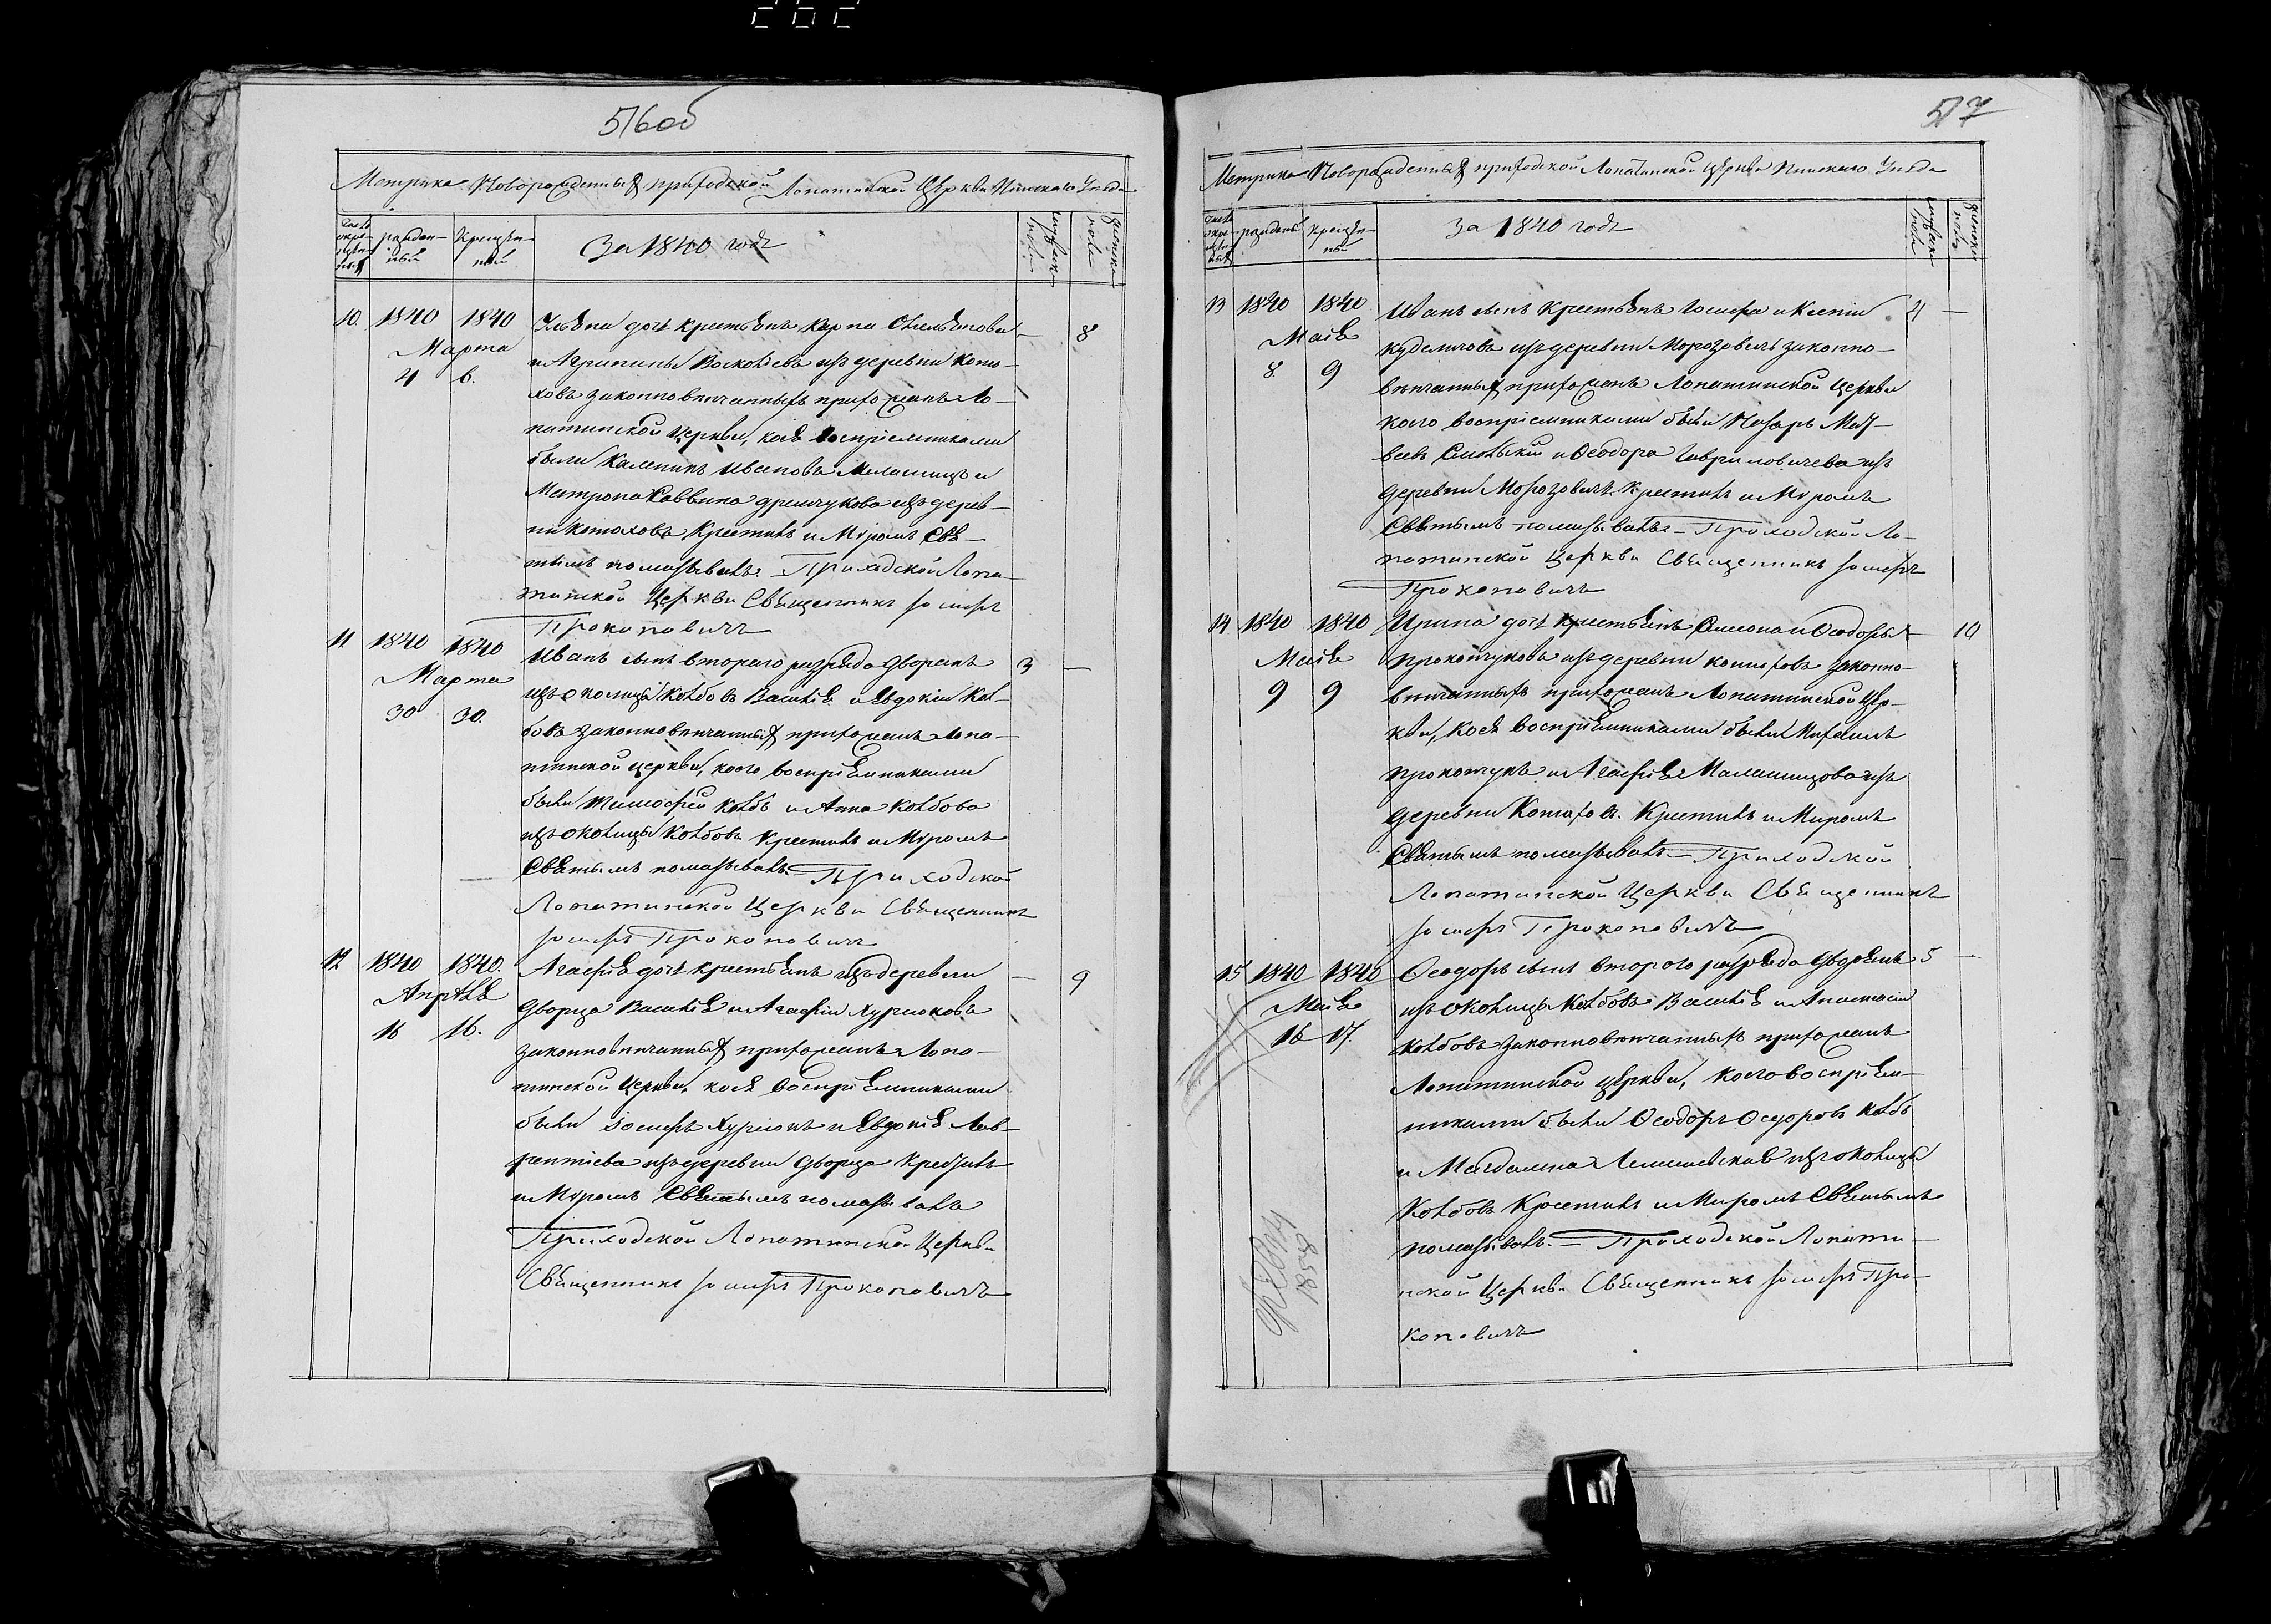 262
516об
Метрика Новорожденныхъ приходской Лопатинской Церкви Пинского Уѣзда
Число окре- щен- ныхъ
рожден- ный
Крещен- ный
За 1840 годъ
мужск: пола
женска пола
10. 1840 1840 дочь крестьянъ Карпа — 8
Марта
и Агрипины изъ деревни Кото-
4 6.
ховъ законновѣнчанныхъ прихожанъ Ло-
патинской Церкви, коея воспріемниками
были Каленикъ Ивановъ и
Матрона Саввина изъ дерев-
ни Котохова Крестилъ и Мѵромъ Свя-
тымъ помазывалъ. Приходской Лопа-
тинской Церкви Священникъ Іосифъ
Прокоповичъ
11 1840 1840 Иванъ сынъ втораго разряда дворянъ 3 —
Марта
изъ околицы Колбовъ Василія и Евдокіи Кол-
30 30.
бовъ законновѣнчанныхъ прихожанъ Лопа-
тинской церкви, коего воспріемниками
были Тимофей Колбъ и Анна Колбова
изъ околицы Колбовъ Крестилъ и Мѵромъ
Святымъ помазывалъ. Приходской
Лопатинской Церкви Священникъ
Іосифъ Прокоповичъ
12 1840 1840. Агафія дочь крестьянъ изъ деревни — 9
Апрѣля
Дворца Василія и Агафіи Хурсиковъ
16 16.
законновѣнчанныхъ прихожанъ Лопа-
тинской Церкви, коея воспріемниками
были Іосифъ и Евдокія Лав-
рентіева изъ деревни Дворца Крестилъ
и Мѵромъ Святымъ помазывалъ
Приходской Лопатинской Церкви
Священникъ Іосифъ Прокоповичъ
517
Метрика Новорожденныхъ приходской Лопатинской Церкви Пинского Уѣзда
Число окре- щен- ныхъ
рожденный
крещен- ный
За 1840 годъ
мужеска пола
женска пола
13 1840 1840 Иванъ сынъ Крестьянъ Іосифа и Ксеніи 4 —
Маія
изъ деревни Морозовичъ законно-
8. 9
вѣнчанныхъ прихожанъ Лопатинской Церкви
коего воспріемниками были Назаръ Мат-
веевъ и Ѳеодора Гавриловичева изъ
деревни Морозовичъ. Крестилъ и Мѵромъ
Святымъ помазывалъ. — Приходской Ло-
патинской Церкви Священникъ Іосифъ
Прокоповичъ
14 1840 1840 Ирина дочь крестьянъ Симеона и Ѳеодоры — 10
Маія
Прокопчуковъ изъ деревни Котоховъ законно-
9 9
вѣнчанныхъ прихожанъ Лопатинской Цер-
кви, коея воспріемниками были Михаилъ
Прокопчукъ и Агафія изъ
деревни Котоховъ. Крестилъ и Миромъ
Святымъ помазывалъ. — Приходской
Лопатинской Церкви Священникъ
Іосифъ Прокоповичъ
15 1840 1840 Ѳеодоръ сынъ втораго разряда Дворянъ 5 —
Маія
изъ околицы Колбовъ Василія и Анастасіи
16 17.
Колбовъ законновѣнчанныхъ прихожанъ
Лопатинской церкви, коего воспріем-
никами были Ѳеодоръ Ѳедоровъ Колбъ
и Магдалена изъ околицы
Колбовъ Крестилъ и Миромъ Святымъ
помазывалъ. — Приходской Лопати-
нской Церкви Священникъ Іосифъ Про-
коповичъ
1858